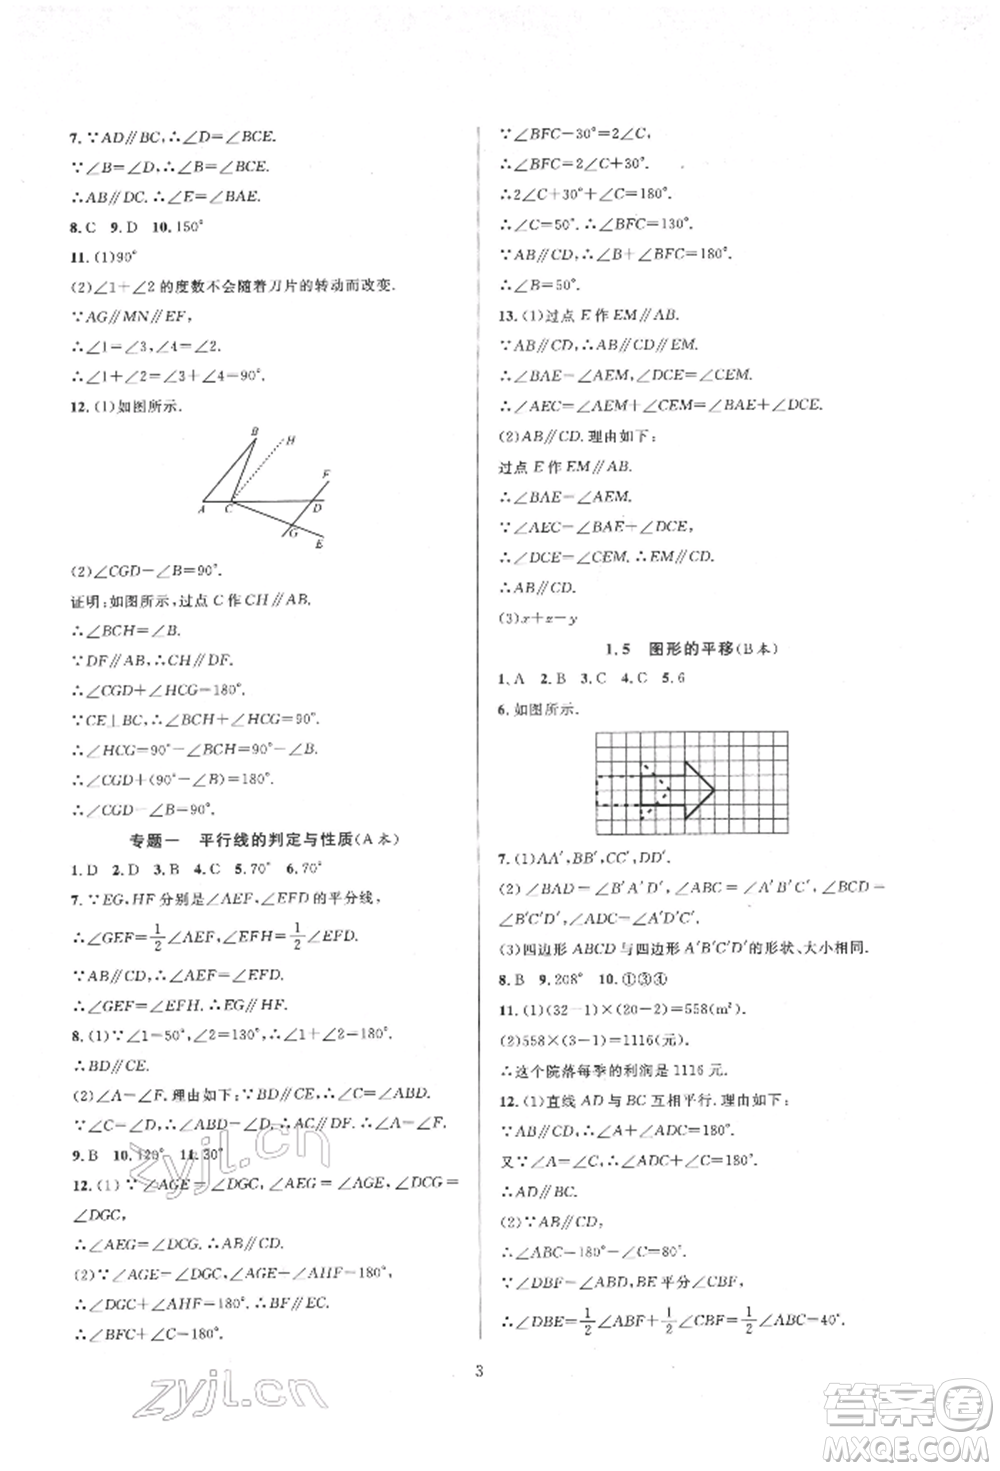 7.∵AD∥BC,∴∠D=∠BCE.
∵∠B=∠D,∴∠B=∠BCE.
∴AB∥DC.∴∠E=∠BAE.
8.C 9.D 10.150°
11.(1)90°
(2)∠1+∠2的度数不会随着刀片的转动而改变.
∵AG∥MN∥EF,
∴∠1=∠3,∠4=∠2.
∴∠1+∠2=∠3+∠4=90°.
12.(1)如图所示.
B H
F
A C D
G
E
(2)∠CGD-∠B=90°.
证明:如图所示,过点C作CH∥AB.
∴∠BCH=∠B.
∵DF∥AB,∴CH∥DF.
∴∠CGD+∠HCG=180°.
∵CE⊥BC,∴∠BCH+∠HCG=90°.
∴∠HCG=90°-∠BCH=90°-∠B.
∴∠CGD+(90°-∠B)=180°.
∴∠CGD-∠B=90°.
专题一 平行线的判定与性质(A本)
1.D 2.D 3.B 4.C 5.70° 6.70°
7.∵EG,HF分别是∠AEF,∠EFD的平分线,
∴∠GEF=1/2∠AEF,∠EFH=1/2∠EFD.
∵AB∥CD,∴∠AEF=∠EFD.
∴∠GEF=∠EFH.∴EG∥HF.
8.(1)∵∠1=50°,∠2=130°,∴∠1+∠2=180°.
∴BD∥CE.
(2)∠A=∠F.理由如下:∵BD∥CE,∴∠C=∠ABD.
∵∠C=∠D,∴∠ABD=∠D.∴AC∥DF.∴∠A=∠F.
9.B 10.120° 11.30°
12.(1)∵∠AGE=∠DGC,∠AEG=∠AGE,∠DCG=
∠DGC,
∴∠AEG=∠DCG.∴AB∥CD.
(2)∵∠AGE=∠DGC,∠AGE+∠AHF=180°,
∴∠DGC+∠AHF=180°.∴BF∥EC.
∴∠BFC+∠C=180°.
∵∠BFC-30°=2∠C,
∴∠BFC=2∠C+30°.
∴2∠C+30°+∠C=180°.
∴∠C=50°.∴∠BFC=130°.
∵AB∥CD,∴∠B+∠BFC=180°.
∴∠B=50°.
13.(1)过点E作EM∥AB.
∵AB∥CD,∴CD∥EM.
∴∠BAE=∠AEM,∠DCE=∠CEM.
∴∠AEC=∠AEM+∠CEM=∠BAE+∠DCE.
(2)AB∥CD.理由如下:
过点E作EM∥AB.
∴∠BAE=∠AEM.
∵∠AEC=∠BAE+∠DCE,
∴∠DCE=∠CEM.∴EM∥CD.
∴AB∥CD.
(3)x+z-y
1.5 图形的平移(B本)
1.A 2.B 3.C 4.C 5.6
6.如图所示.
7.(1)AA′,BB′,CC′,DD′.
(2)∠BAD=∠B′A′D′,∠ABC=∠A′B′C′,∠BCD=
∠B′C′D′,∠ADC=∠A′D′C′.
(3)四边形ABCD与四边形A′B′C′D′的形状、大小相同.
8.B 9.208° 10.①③④
11.(1)(32-1)×(20-2)=558(m²).
(2)558×(3-1)=1116(元).
∴这个院落每季的利润是1116元.
12.(1)直线AD与BC互相平行.理由如下:
∵AB∥CD,∴∠A+∠ADC=180°.
又∵∠A=∠C,∴∠ADC+∠C=180°.
∴AD∥BC.
(2)∵AB∥CD,
∴∠ABC=180°-∠C=80°.
∵∠DBF=∠ABD,BE平分∠CBF,
∴∠DBE=1/2∠ABF+1/2∠CBF=1/2∠ABC=40°.
3
zyjl.cn
zyjl.cn
答案圈
MXQE.COM